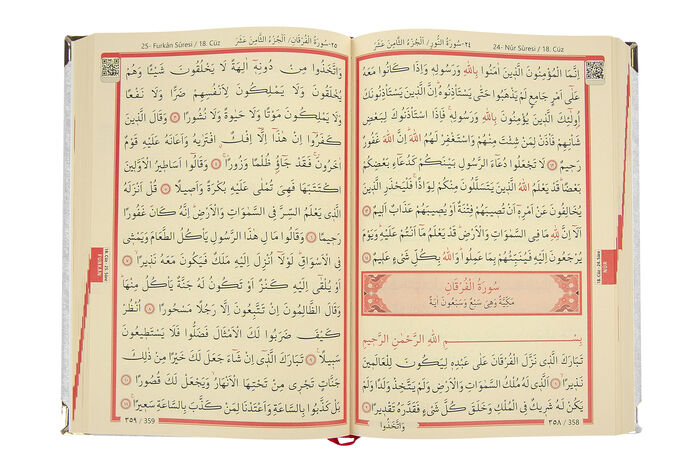 24- Nûr Sûresi / 18. Cüz ٢٤- سُورَةُ النُّورِ / اَلْجُزْءُ الثَّامِنَ عَشَرَ
اِنَّمَا الْمُؤْمِنُونَ الَّذ۪ينَ اٰمَنُوا بِاللّٰهِ وَرَسُولِه۪ وَاِذَا كَانُوا مَعَهُ
عَلٰٓى اَمْرٍ جَامِعٍ لَمْ يَذْهَبُوا حَتّٰى يَسْتَأْذِنُوهُۜ اِنَّ الَّذ۪ينَ يَسْتَأْذِنُونَكَ
اُو۬لٰٓئِكَ الَّذ۪ينَ يُؤْمِنُونَ بِاللّٰهِ وَرَسُولِه۪ۚ فَاِذَا اسْتَأْذَنُوكَ لِبَعْضِ
شَأْنِهِمْ فَأْذَنْ لِمَنْ شِئْتَ مِنْهُمْ وَاسْتَغْفِرْ لَهُمُ اللّٰهَۜ اِنَّ اللّٰهَ غَفُورٌ
رَح۪يمٌ ﴿٦٢﴾ لَا تَجْعَلُوا دُعَٓاءَ الرَّسُولِ بَيْنَكُمْ كَدُعَٓاءِ بَعْضِكُمْ
بَعْضًاۜ قَدْ يَعْلَمُ اللّٰهُ الَّذ۪ينَ يَتَسَلَّلُونَ مِنْكُمْ لِوَاذًاۚ فَلْيَحْذَرِ الَّذ۪ينَ
يُخَالِفُونَ عَنْ اَمْرِه۪ٓ اَنْ تُص۪يبَهُمْ فِتْنَةٌ اَوْ يُص۪يبَهُمْ عَذَابٌ اَل۪يمٌ ﴿٦٣﴾
اَلَٓا اِنَّ لِلّٰهِ مَا فِي السَّمٰوَاتِ وَالْاَرْضِۜ قَدْ يَعْلَمُ مَٓا اَنْتُمْ عَلَيْهِۜ وَيَوْمَ
يُرْجَعُونَ اِلَيْهِ فَيُنَبِّئُهُمْ بِمَا عَمِلُواۜ وَاللّٰهُ بِكُلِّ شَيْءٍ عَل۪يمٌ ﴿٦٤﴾
سُورَةُ الْفُرْقَانِ
مَكِّيَّةٌ وَهِيَ سَبْعٌ وَسَبْعُونَ اٰيَةً
بِسْمِ اللّٰهِ الرَّحْمٰنِ الرَّح۪يمِ
تَبَارَكَ الَّذ۪ي نَزَّلَ الْفُرْقَانَ عَلٰى عَبْدِه۪ لِيَكُونَ لِلْعَالَم۪ينَ
نَذ۪يرًاۙ ﴿١﴾ اَلَّذ۪ي لَهُ مُلْكُ السَّمٰوَاتِ وَالْاَرْضِ وَلَمْ يَتَّخِذْ وَلَدًا وَلَمْ
يَكُنْ لَهُ شَر۪يكٌ فِي الْمُلْكِ وَخَلَقَ كُلَّ شَيْءٍ فَقَدَّرَهُ تَقْد۪يرًا ﴿٢﴾
وَاتَّخَذُوا
٣٥٨ / 358
18. Cüz - 24. Sûre
NÛR
25- Furkân Sûresi / 18. Cüz ٢٥- سُورَةُ الْفُرْقَانِ / اَلْجُزْءُ الثَّامِنَ عَشَرَ
وَاتَّخَذُوا مِنْ دُونِه۪ٓ اٰلِهَةً لَا يَخْلُقُونَ شَيْـًٔا وَهُمْ
يُخْلَقُونَ وَلَا يَمْلِكُونَ لِاَنْفُسِهِمْ ضَرًّا وَلَا نَفْعًا
وَلَا يَمْلِكُونَ مَوْتًا وَلَا حَيٰوةً وَلَا نُشُورًا ﴿٣﴾ وَقَالَ الَّذ۪ينَ
كَفَرُٓوا اِنْ هٰذَٓا اِلَّٓا اِفْكٌۨ افْتَرٰيهُ وَاَعَانَهُ عَلَيْهِ قَوْمٌ
اٰخَرُونَۚ فَقَدْ جَٓاؤُ۫ ظُلْمًا وَزُورًاۚ ﴿٤﴾ وَقَالُٓوا اَسَاط۪يرُ الْاَوَّل۪ينَ
اكْتَتَبَهَا فَهِيَ تُمْلٰى عَلَيْهِ بُكْرَةً وَاَص۪يلًا ﴿٥﴾ قُلْ اَنْزَلَهُ
الَّذ۪ي يَعْلَمُ السِّرَّ فِي السَّمٰوَاتِ وَالْاَرْضِۜ اِنَّهُ كَانَ غَفُورًا
رَح۪يمًا ﴿٦﴾ وَقَالُوا مَالِ هٰذَا الرَّسُولِ يَأْكُلُ الطَّعَامَ وَيَمْش۪ي
فِي الْاَسْوَاقِۜ لَوْلَٓا اُنْزِلَ اِلَيْهِ مَلَكٌ فَيَكُونَ مَعَهُ نَذ۪يرًاۙ ﴿٧﴾
اَوْ يُلْقٰٓى اِلَيْهِ كَنْزٌ اَوْ تَكُونُ لَهُ جَنَّةٌ يَأْكُلُ مِنْهَاۜ
وَقَالَ الظَّالِمُونَ اِنْ تَتَّبِعُونَ اِلَّا رَجُلًا مَسْحُورًا ﴿٨﴾ اُنْظُرْ
كَيْفَ ضَرَبُوا لَكَ الْاَمْثَالَ فَضَلُّوا فَلَا يَسْتَط۪يعُونَ
سَب۪يلًا۟ ﴿٩﴾ تَبَارَكَ الَّذ۪ٓي اِنْ شَٓاءَ جَعَلَ لَكَ خَيْرًا مِنْ ذٰلِكَ
جَنَّاتٍ تَجْر۪ي مِنْ تَحْتِهَا الْاَنْهَارُۙ وَيَجْعَلْ لَكَ قُصُورًا ﴿١٠﴾
بَلْ كَذَّبُوا بِالسَّاعَةِ وَاَعْتَدْنَا لِمَنْ كَذَّبَ بِالسَّاعَةِ سَع۪يرًاۚ ﴿١١﴾
٣٥٩ / 359
18. Cüz - 25. Sûre
FURKÂN